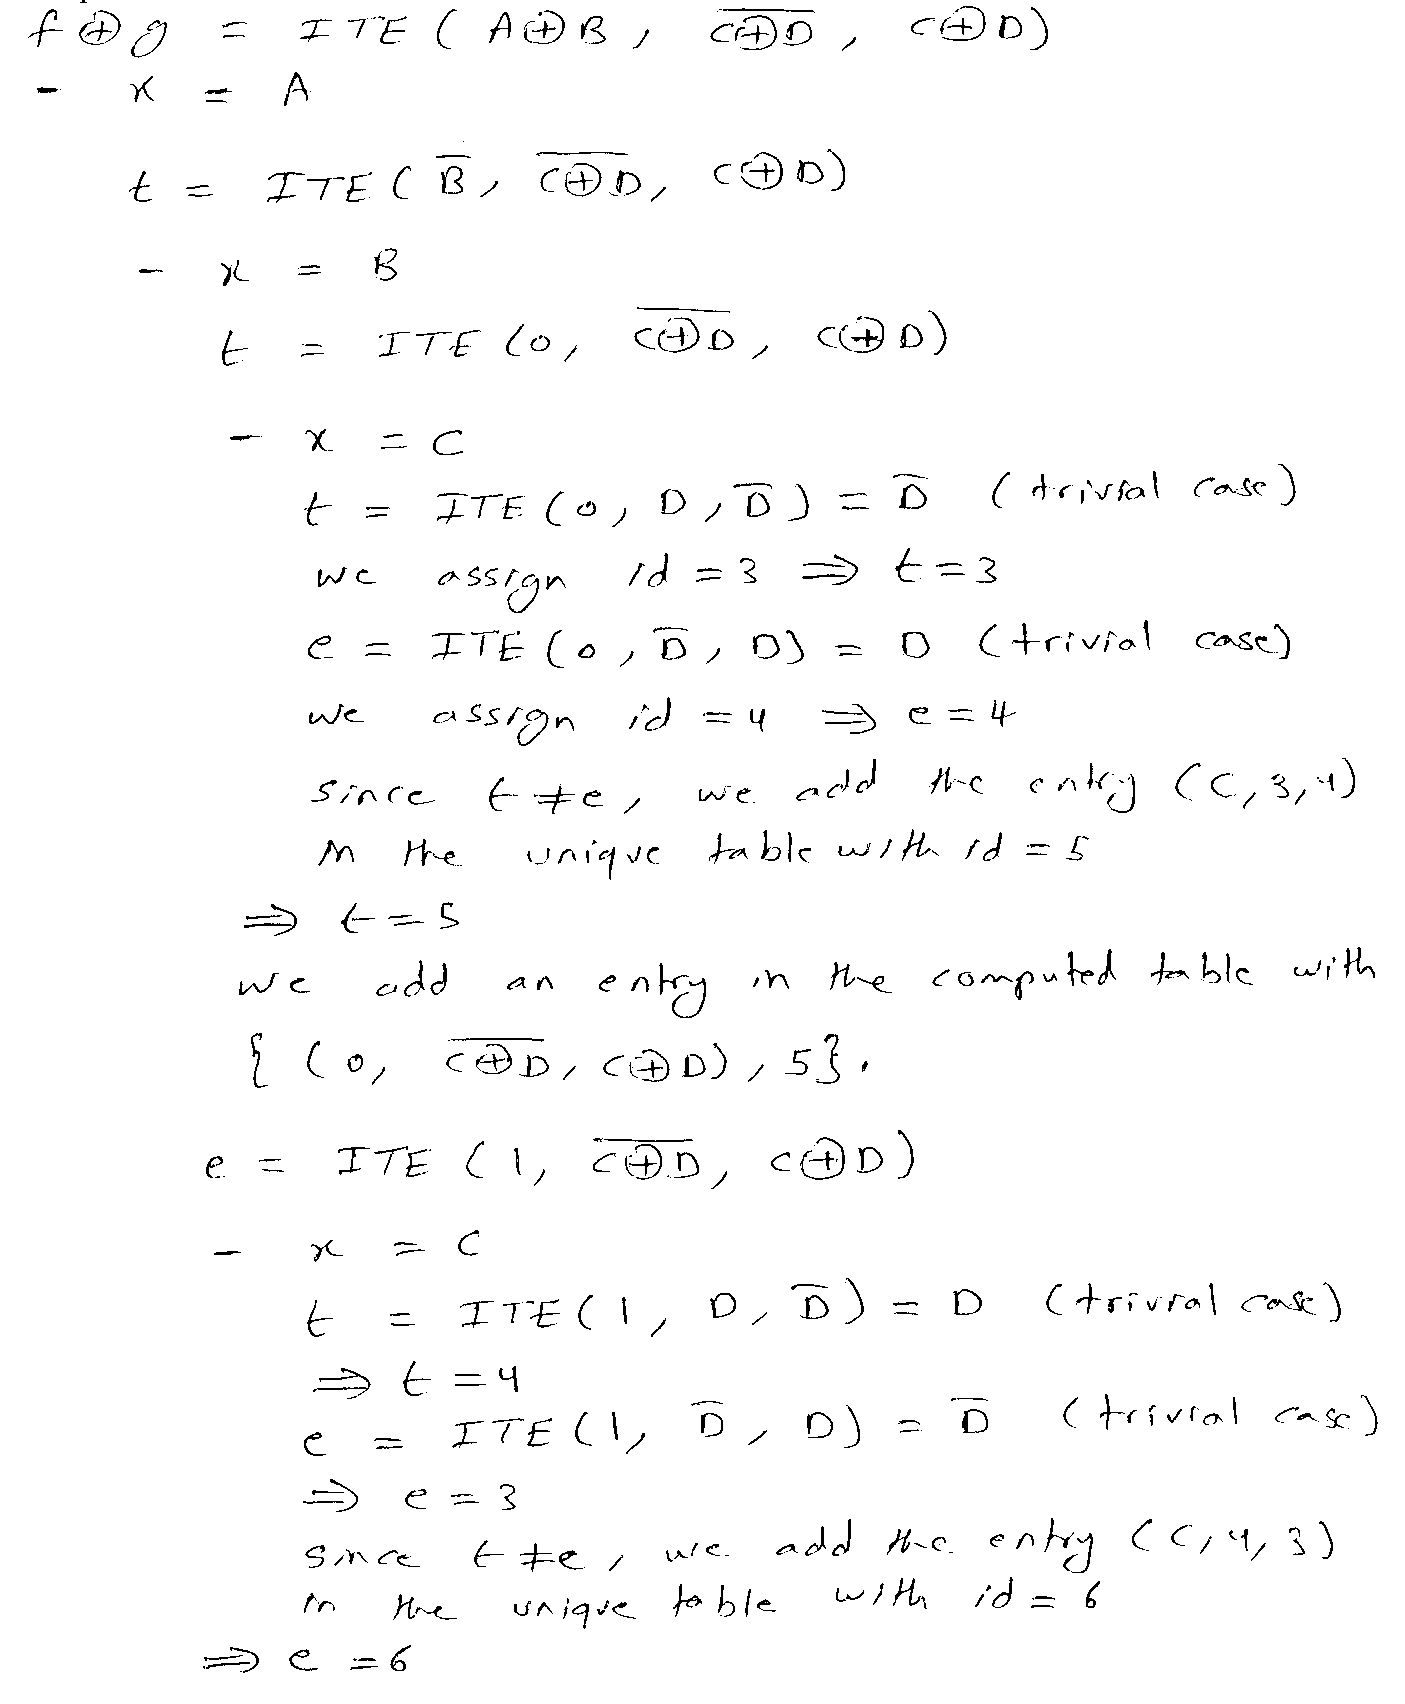 f ⊕ g = ITE ( A⊕B , \overline{C⊕D} , C⊕D )
- x = A
t = ITE ( B̅ , \overline{C⊕D} , C⊕D )
- x = B
t = ITE (0, \overline{C⊕D} , C⊕D )
- x = C
t = ITE (0, D, D̅ ) = D̅ (trivial case)
we assign id = 3 ⇒ t = 3
e = ITE (0, D̅ , D) = D (trivial case)
we assign id = 4 ⇒ e = 4
since t ≠ e, we add the entry (C, 3, 4)
in the unique table with id = 5
⇒ t = 5
we add an entry in the computed table with
{ (0, \overline{C⊕D} , C⊕D) , 5 }.
e = ITE (1, \overline{C⊕D} , C⊕D )
- x = C
t = ITE (1, D, D̅ ) = D (trivial case)
⇒ t = 4
e = ITE (1, D̅ , D) = D̅ (trivial case)
⇒ e = 3
since t ≠ e, we add the entry (C, 4, 3)
in the unique table with id = 6
⇒ e = 6